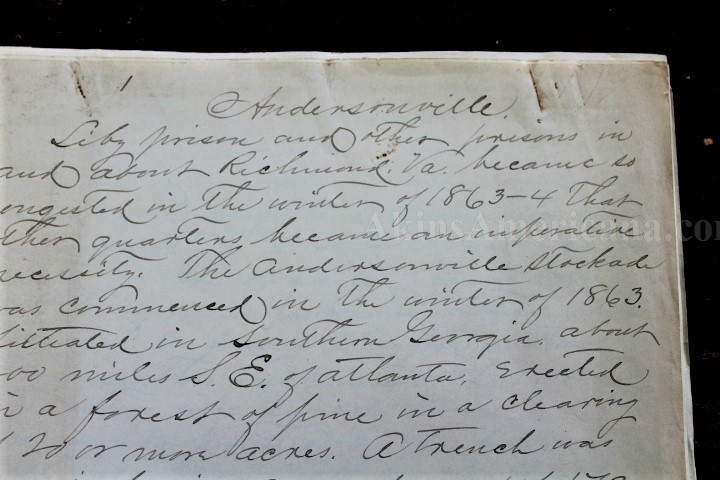 1
Andersonville.
Liby prison and other prisons in
and about Richmond, Va. became so
ongested in the winter of 1863-4 that
ther quarters became an imperative
necessity. The Andersonville stockade
was commenced in the winter of 1863.
Situated in southern Georgia, about
00 miles S.E. of atlanta. Erected
in a forest of pine in a clearing
20 or more acres. A trench was
AkinsAmericana.co